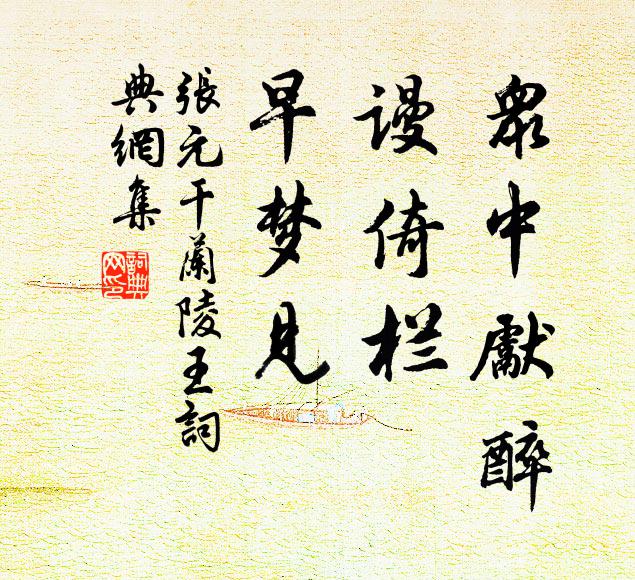 眾中獻醉
謾倚栏
早梦见
張元干蘭陵王詞
典網集
詞典網印